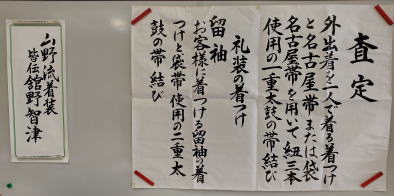 査定
外出着を一人で着る着つけ
と名古屋帯または袋
名古屋帯を用いて紐三本
使用の一重太鼓の帯結び
礼装の着つけ
留袖
お客様に着つける留袖の着
つけと袋帯使用の二重太
鼓の帯結び
山野流着装
皆伝舘野智津